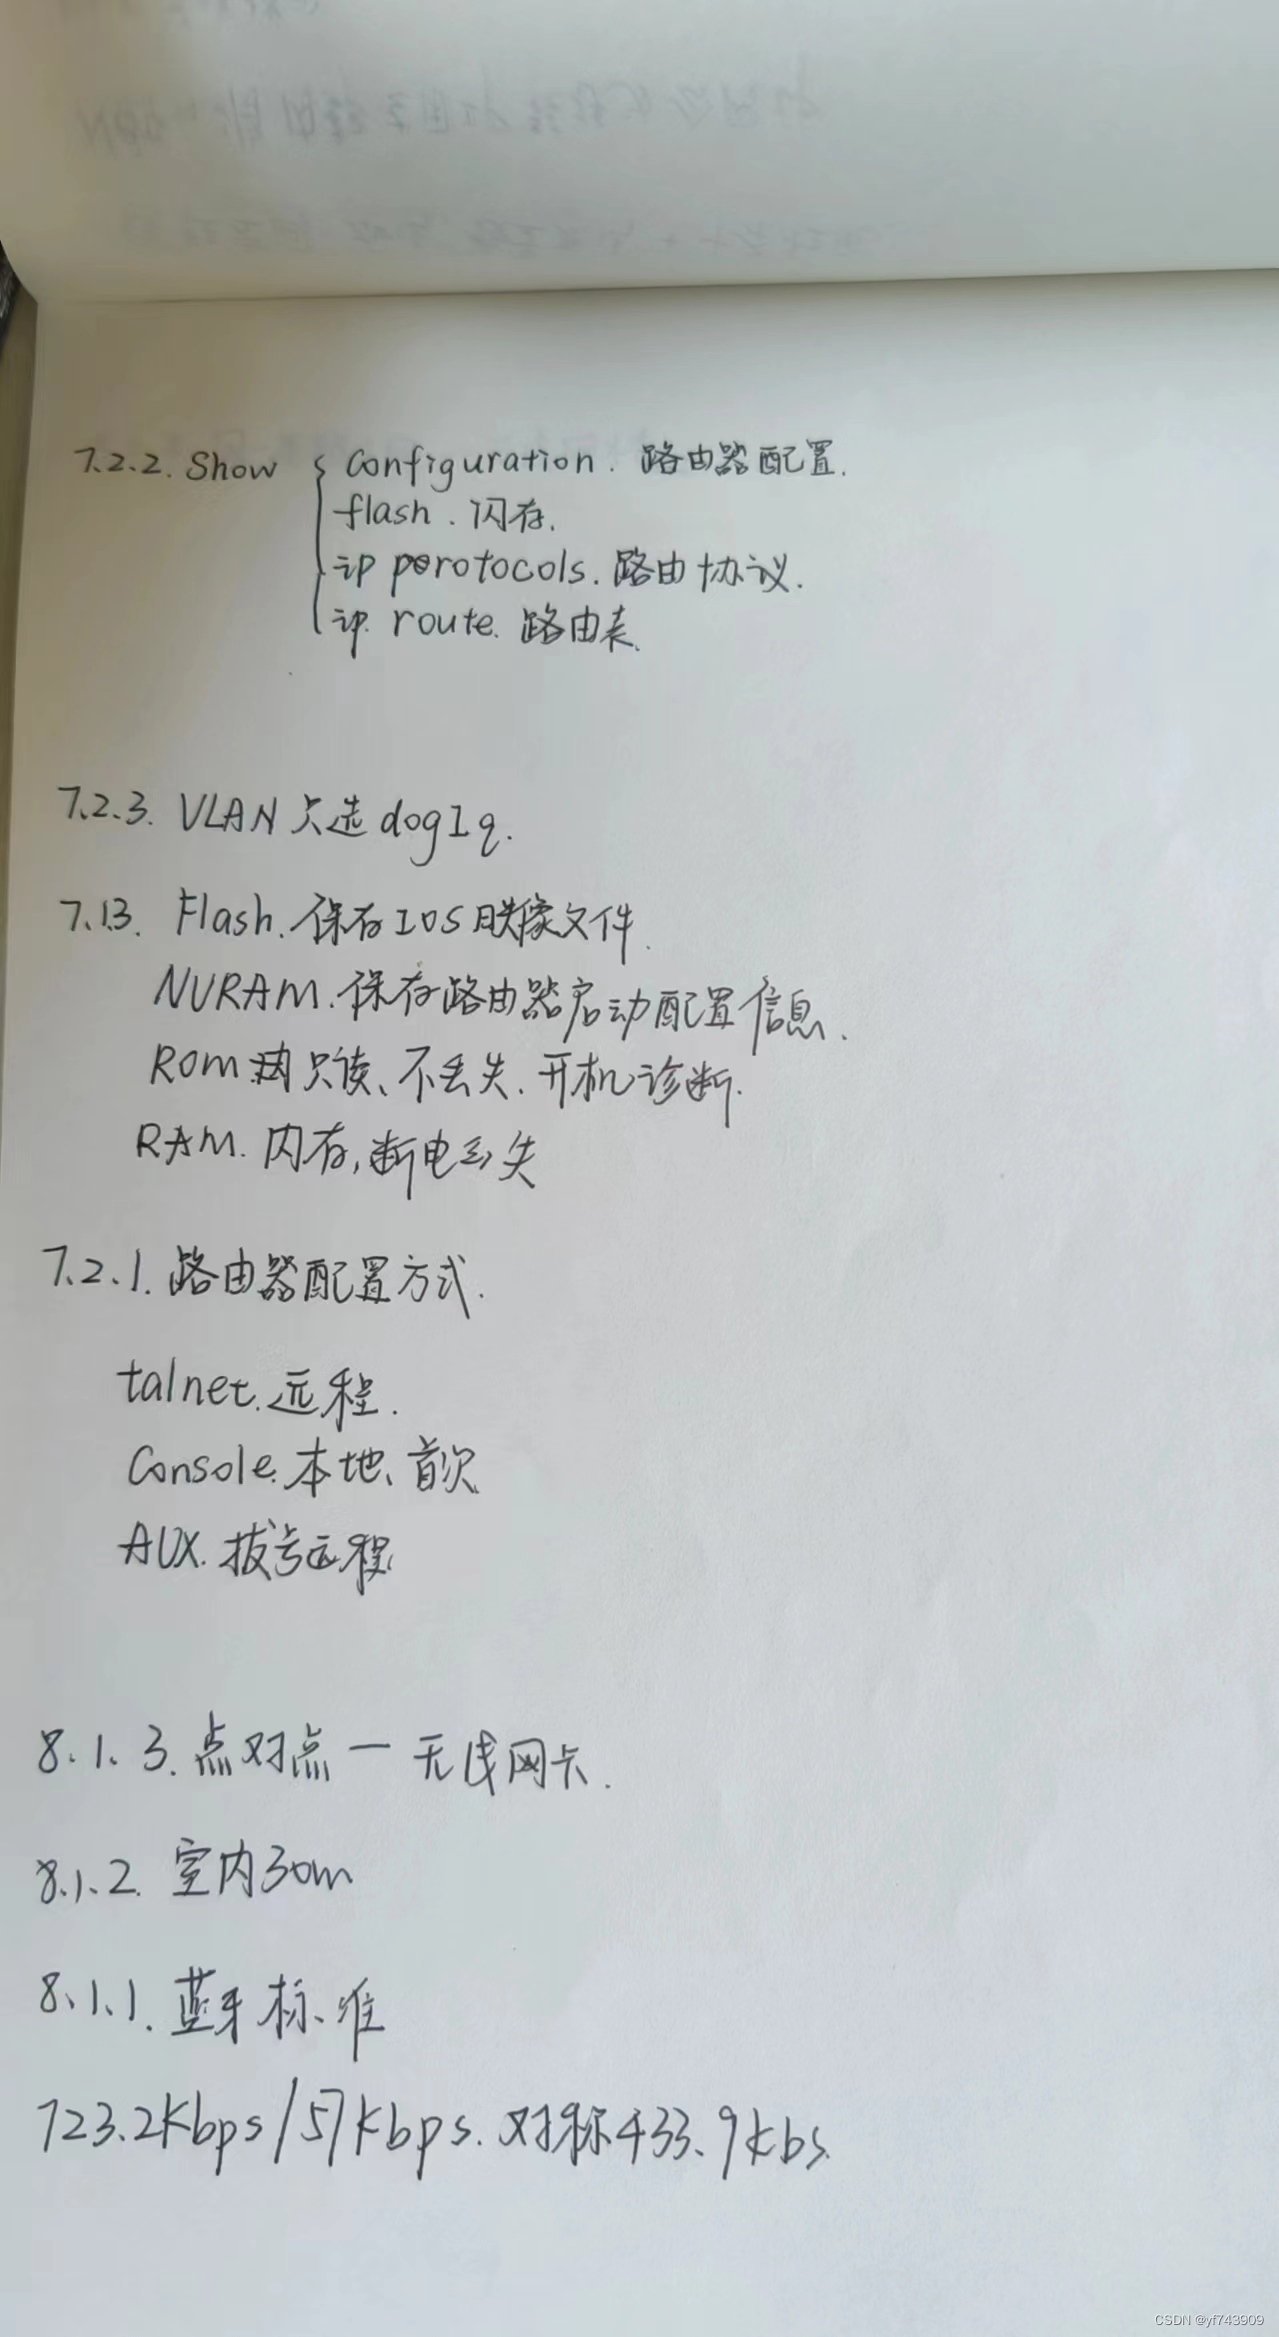 7.2.2. Show { Configuration. 路由器配置.
flash. 闪存.
ip porotocols. 路由协议.
ip. route. 路由表.
7.2.3. VLAN 只选 dogIq.
7.13. Flash. 保存IOS映像文件.
NVRAM. 保存路由器启动配置信息.
Rom 只读、不丢失. 开机诊断.
RAM. 内存, 断电丢失
7.2.1. 路由器配置方式.
talnet. 远程.
Console. 本地、首次
AUX. 拔号远程
8.1.3. 点对点 — 无线网卡.
8.1.2. 室内30m
8.1.1. 蓝牙标准
723.2Kbps/57Kbps. 对称433.9kbs.
CSDN @yf743909